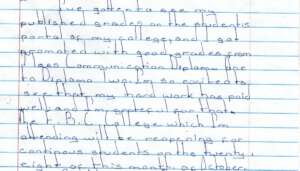 we gotten to see my
published grades on the students
portal of my college, and I got
promoted with good grades from
Communication Diploma one
to Diploma two. I'm so excited to
see that my hard work has paid
me
the I. B. C College which im
attending will be reopening for
continous students on the twenty
eight of this month of October.